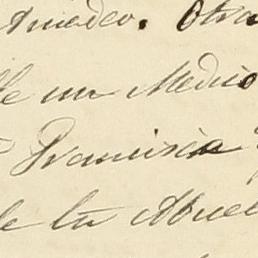 Amadeo. Otra
de un Medio
Francisca
de tu Abuel